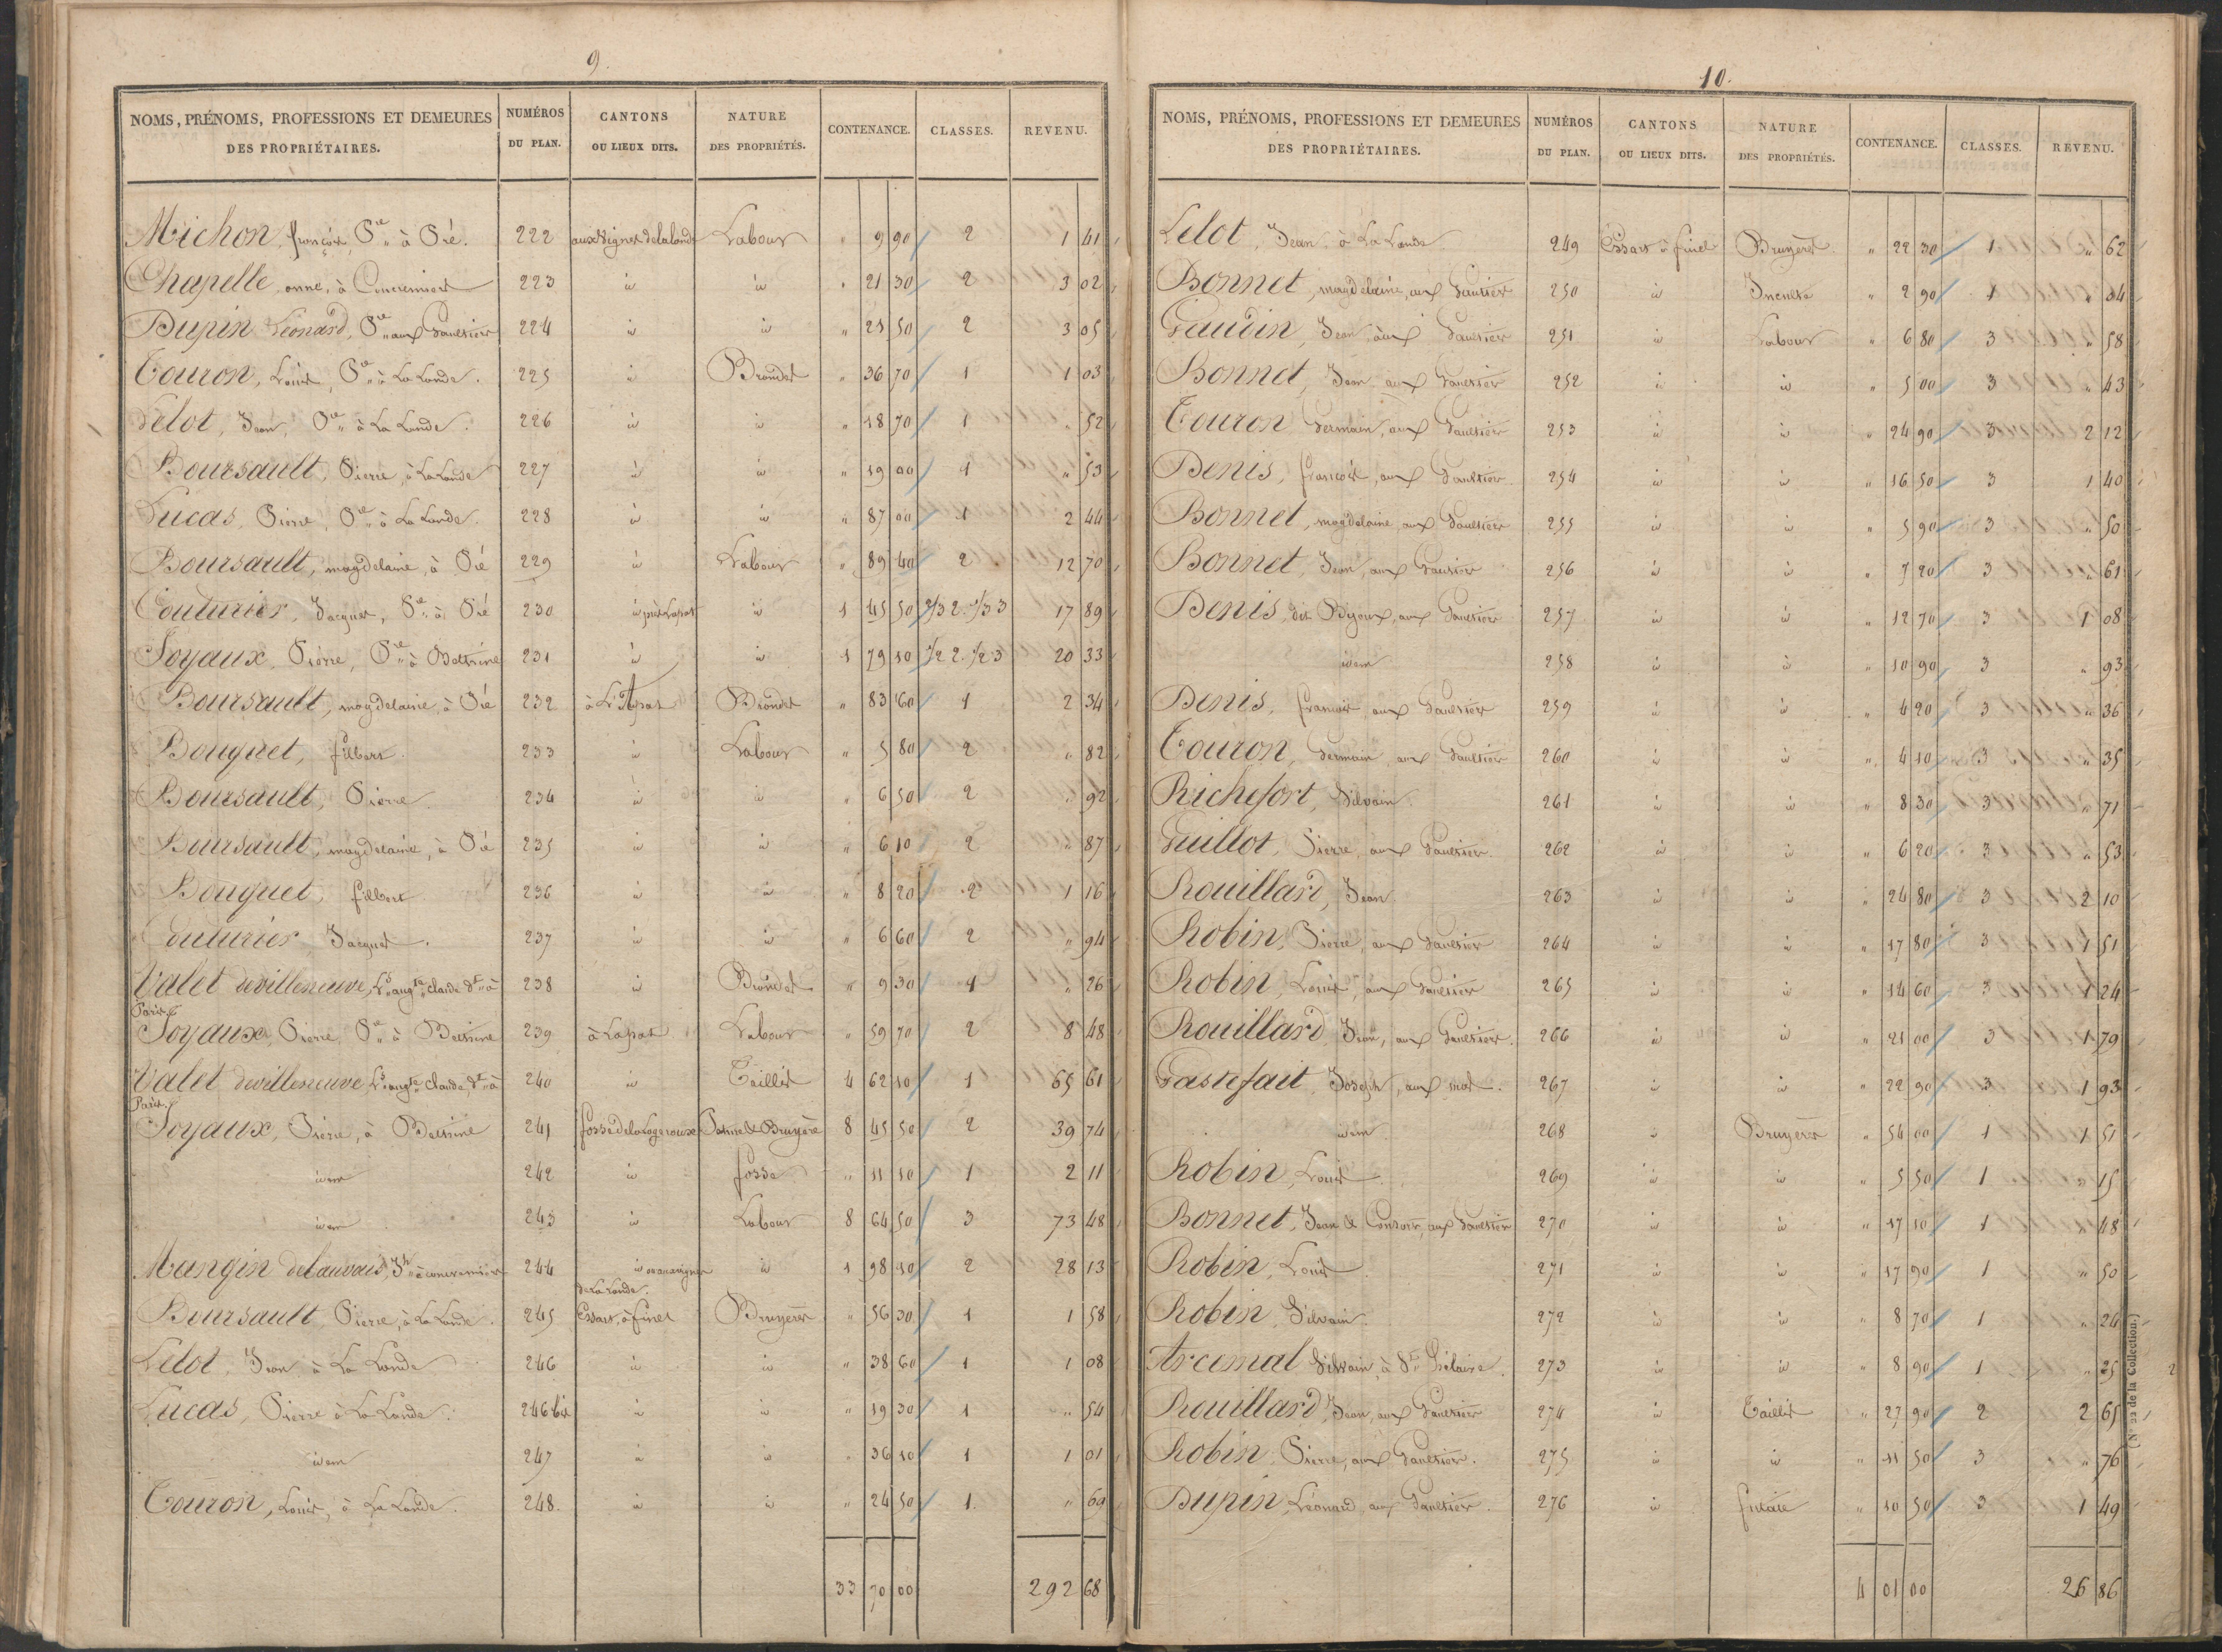 9.
NOMS, PRÉNOMS, PROFESSIONS ET DEMEURES DES PROPRIÉTAIRES. NUMÉROS DU PLAN. CANTONS OU LIEUX DITS. NATURE DES PROPRIÉTÉS. CONTENANCE. CLASSES. REVENU.
Michon, françois, Pre à Pié. 222 aux Vignes de la lande Labour " 9 90 2 1 41
Chapelle, anne, à Concremiers 223 id id " 21 30 2 3 02
Dupin Léonard, Pre aux Gaultiers 224 id id " 21 50 2 3 05
Touron, Louis, Pre à La Lande. 225 id Brandes " 36 70 1 1 03
Lelot, Jean, Pre à La Lande. 226 id id " 18 70 1 " 52
Boursault, Pierre, à La Lande 227 id id " 19 00 1 " 53
Lucas, Pierre, Pre à La Lande. 228 id id " 87 00 1 2 44
Boursault, magdelaine, à Pié 229 id Labour " 89 40 2 12 70
Couturier, Jacques, Pre à Pié 230 id près Lapat id 1 45 50 2/3 2. 1/3 3 17 89
Joyaux, Pierre, Pre à 231 id id 1 79 10 1/2 2. 1/2 3 20 33
Boursault, magdelaine, à Pié 232 à Brandes " 83 60 1 2 34
Bouquet, filbert. 233 id Labour " 5 80 2 " 82
Boursault, Pierre. 234 id id " 6 50 2 " 92
Boursault, magdelaine, à Pié 235 id id " 6 10 2 " 87
Bouquet, filbert 236 id id " 8 20 2 1 16
Couturier, Jacques. 237 id id " 6 60 2 " 94
Valet devilleneuve, Ls augte claude dt à Paris. 238 id Brandes " 9 30 1 " 26
Joyaux, Pierre, Pre à 239 à Lapat Labour " 59 70 2 8 48
Valet devilleneuve, Ls augte claude, dt à Paris. 240 id Taillis 4 62 10 1 65 61
Joyaux, Pierre, à 241 fosse de la Bruyère 8 45 50 2 39 74
idem 242 id fosse " 11 10 1 2 11
idem 243 id Labour 8 64 50 3 73 48
Mangin delauvais, Jh à concremiers 244 id ou aux vignes de La Lande. id 1 98 10 2 28 13
Boursault, Pierre, à La Lande. 245 Essart, à finet Bruyères " 56 30 1 1 58
Lelot, Jean à La Lande 246 id id " 38 60 1 1 08
Lucas, Pierre à La Lande. 246 bis id id " 19 30 1 " 54
idem 247 id id " 36 10 1 1 01
Touron, Louis, à La Lande. 248. id id " 24 50 1. " 69
33 70 00 292 68
10.
NOMS, PRÉNOMS, PROFESSIONS ET DEMEURES DES PROPRIÉTAIRES. NUMÉROS DU PLAN. CANTONS OU LIEUX DITS. NATURE DES PROPRIÉTÉS. CONTENANCE. CLASSES. REVENU.
Lelot, Jean, à La Lande 249 Essart à finet Bruyères " 22 30 1 " 62
Bonnet, magdelaine, aux Gaultiers 250 id Inculte " 2 90 1 "
Gaudin, Jean, aux Gaultiers 251 id Labour " 6 80 3 " 58
Bonnet, Jean, aux Gaultiers 252 id id " 5 00 3 " 43
Touron Germain, aux Gaultiers 253 id id " 24 90 3 2 12
Denis, françois, aux Gaultiers. 254 id id " 16 50 3 1 40
Bonnet, magdelaine, aux Gaultiers 255 id id " 5 90 3 " 50
Bonnet, Jean, aux Gaultiers 256 id id " 7 20 3 " 61
Denis, dit Bijoux, aux Gaultiers 257 id id " 12 70 3 1 08
idem 258 id id " 10 90 3 " 93
Denis, françois, aux Gaultiers 259 id id " 4 20 3 " 36
Touron, Germain, aux Gaultiers 260 id id " 4 10 3 " 35
Richefort, Silvain. 261 id id " 8 30 3 " 71
Guillot, Pierre, aux Gaultiers. 262 id id " 6 20 3 " 53
Rouillard, Jean. 263 id id " 24 80 3 2 10
Robin, Pierre, aux Gaultiers 264 id id " 17 80 3 1 51
Robin, Louis, aux Gaultiers 265 id id " 14 60 3 1 24
Rouillard Jean, aux Gaultiers. 266 id id " 21 00 3 1 79
Gastefait, Joseph, aux 267 id id " 22 90 3 1 93
idem 268 id Bruyères " 54 00 1 1 51
Robin, Louis. 269 id id " 5 50 1 " 15
Bonnet, Jean & Consors, aux Gaultiers 270 id id " 17 10 1 " 48
Robin, Louis 271 id id " 17 90 1 " 50
Robin, Silvain. 272 id id " 8 70 1 " 24
Arcemal Silvain, à St hilaire. 273 id id " 8 90 1 " 25
Rouillard, Jean, aux Gaultiers 274 id Taillis " 27 90 2 2 65
Robin, Pierre, aux Gaultiers. 275 id id " 11 50 3 " 76
Dupin, Léonard, aux Gaultiers. 276 id futaie " 10 50 3 1 49
4 01 00 26 86
(No 22 de la Collection.)
2